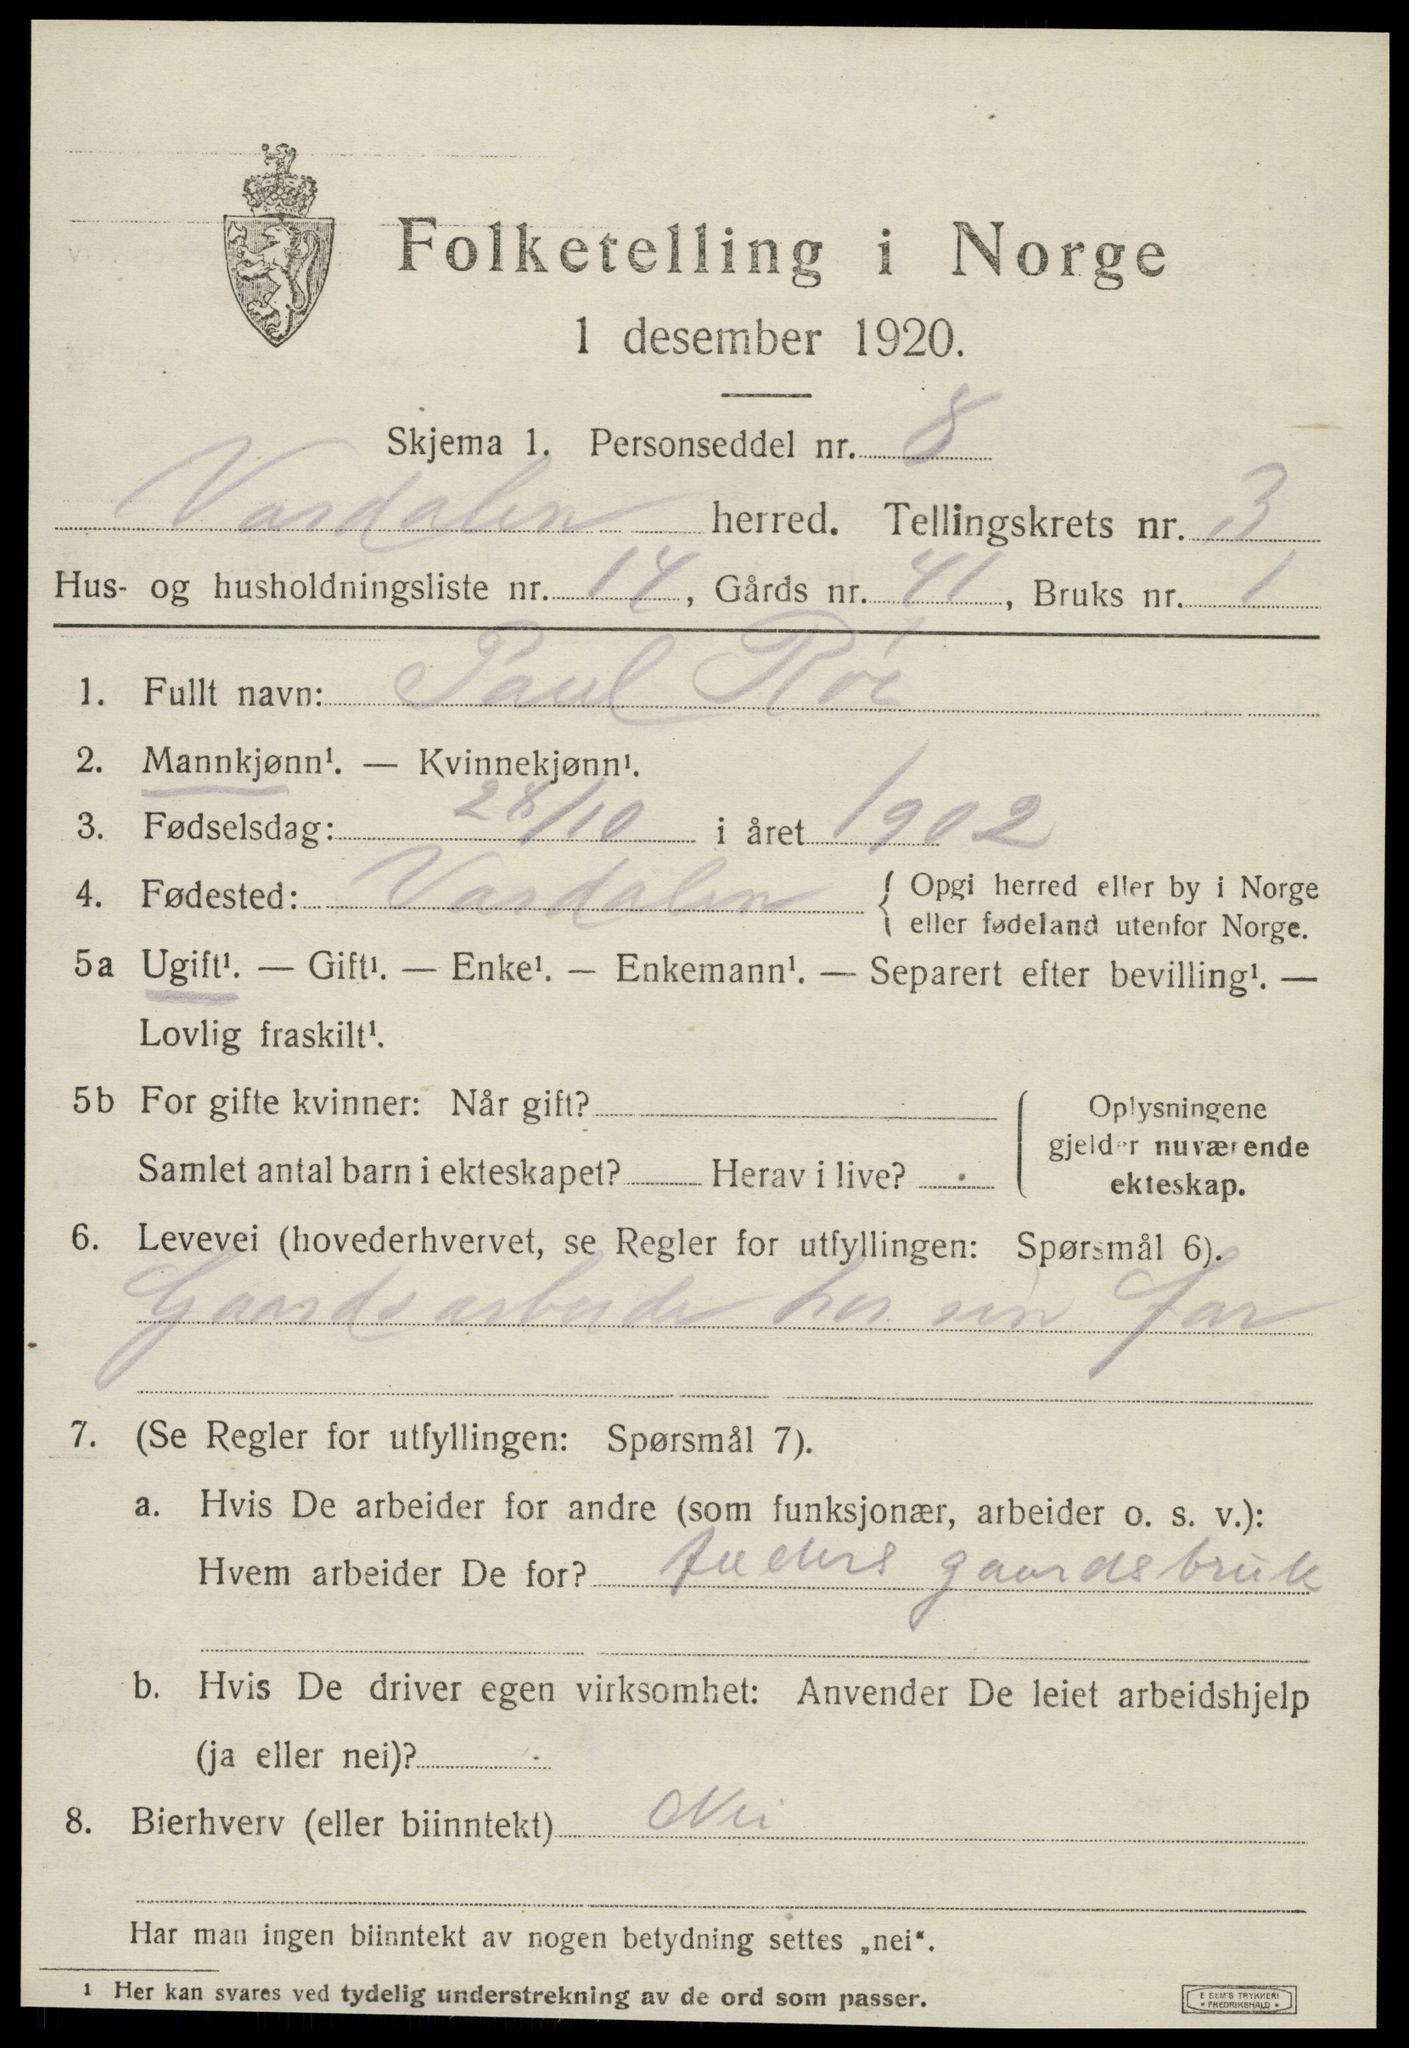 Folketelling i Norge
1 desember 1920.
Skjema 1. Personseddel nr. 8
Værdalen herred. Tellingskrets nr. 3
Hus- og husholdningsliste nr. 14, Gårds nr. 41, Bruks nr. 1
1. Fullt navn: Paul Röe
2. Mannkjønn¹. — Kvinnekjønn¹.
3. Fødselsdag: 28/10 i året 1902
4. Fødested: Værdalen { Opgi herred eller by i Norge
eller fødeland utenfor Norge.
5a Ugift¹. — Gift¹. — Enke¹. — Enkemann¹. — Separert efter bevilling¹. —
Lovlig fraskilt¹.
5b For gifte kvinner: Når gift?
Samlet antal barn i ekteskapet? Herav i live?
Oplysningene
gjelder nuværende
ekteskap.
6. Levevei (hovederhvervet, se Regler for utfyllingen: Spørsmål 6).
Gaardsarbeide hos sin far
7. (Se Regler for utfyllingen: Spørsmål 7).
a. Hvis De arbeider for andre (som funksjonær, arbeider o. s. v.):
Hvem arbeider De for? gaardsbruk
b. Hvis De driver egen virksomhet: Anvender De leiet arbeidshjelp
(ja eller nei)?
8. Bierhverv (eller biinntekt) Nei
Har man ingen biinntekt av nogen betydning settes „nei“.
¹ Her kan svares ved tydelig understrekning av de ord som passer.
E SEM'S TRYKKERI
* FREDRIKSHALD *